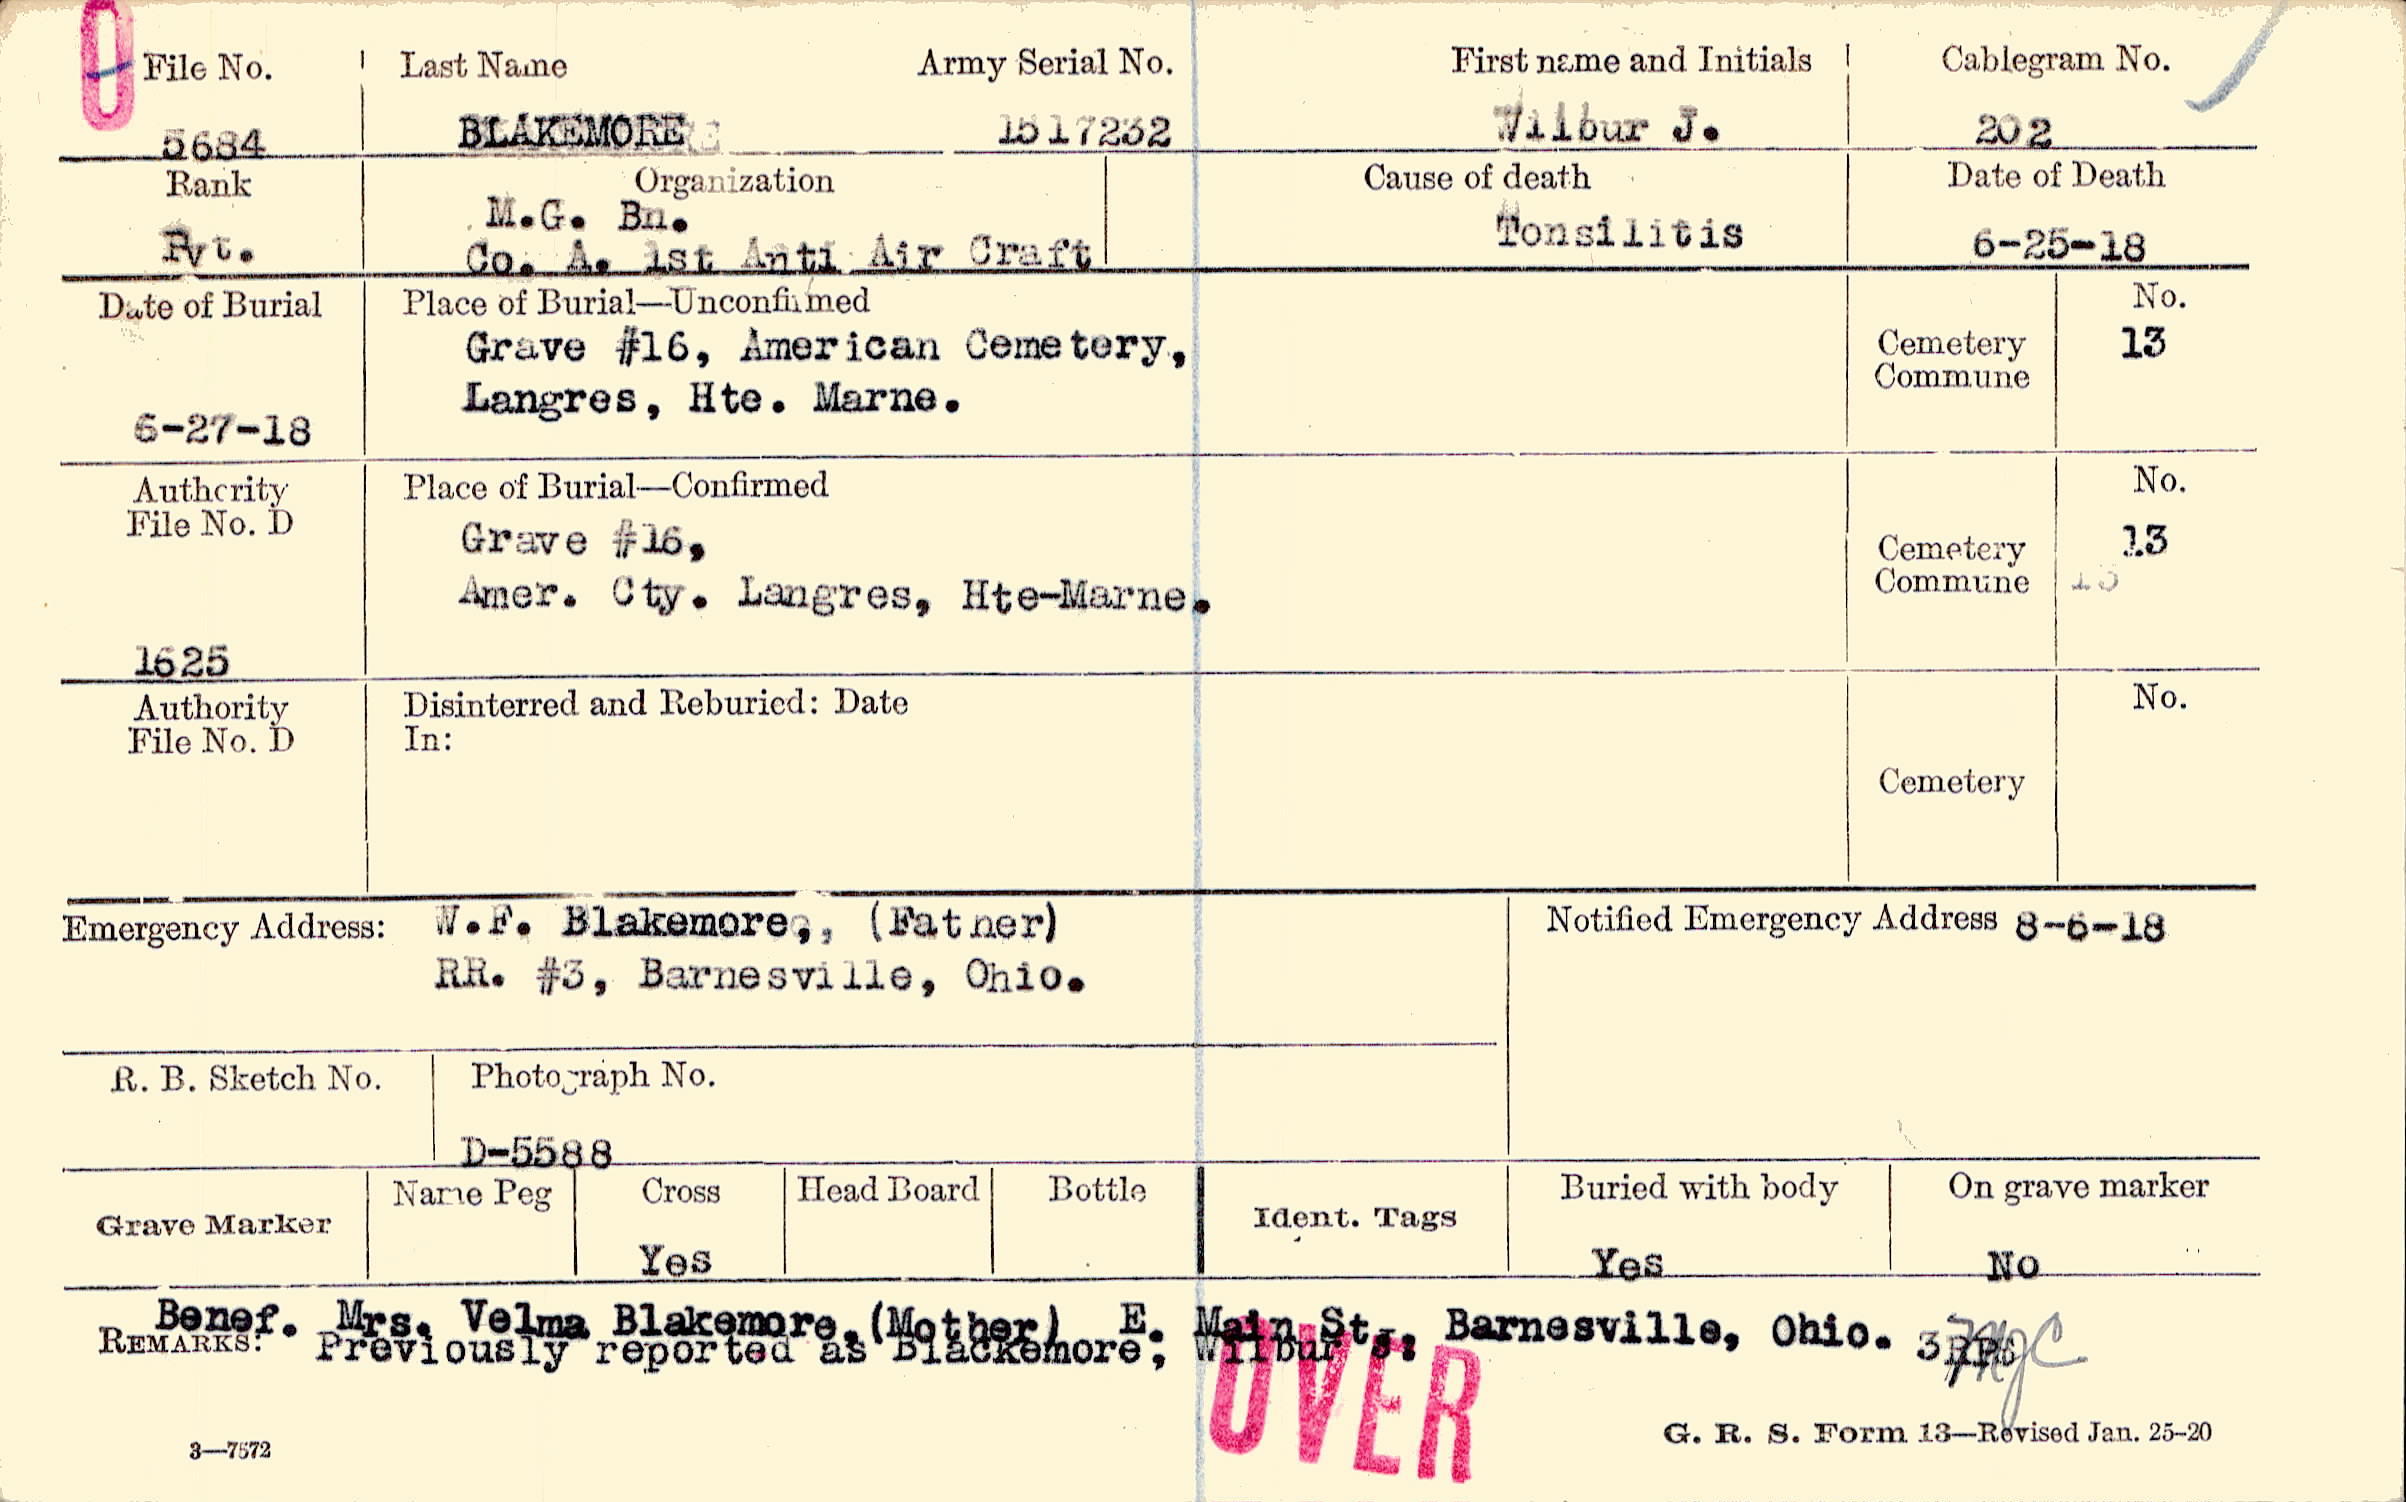 O
File No. Last Name Army Serial No. First name and Initials Cablegram No.
5684 BLAKEMORE 1517232 Wilbur J. 202
Rank Organization Cause of death Date of Death
M.G. Bn.
Pvt. Co. A. 1st Anti Air Craft Tonsilitis 6-25-18
Date of Burial Place of Burial—Unconfirmed No.
Grave #16, American Cemetery, Cemetery 13
Langres, Hte. Marne. Commune
6-27-18
Authority Place of Burial—Confirmed No.
File No. D
Grave #16, Cemetery 13
Amer. Cty. Langres, Hte-Marne. Commune 13
1625
Authority Disinterred and Reburied: Date No.
File No. D In:
Cemetery
Emergency Address: W.F. Blakemore,, (Father) Notified Emergency Address 8-6-18
RR. #3, Barnesville, Ohio.
R. B. Sketch No. Photograph No.
D-5588
Grave Marker Name Peg Cross Head Board Bottle Ident. Tags Buried with body On grave marker
Yes Yes No
Benef. Mrs. Velma Blakemore, (Mother) E. Main St., Barnesville, Ohio.
REMARKS: Previously reported as Blackemore, Wilbur J.
OVER
3—7572 G. R. S. Form 13—Revised Jan. 25-20